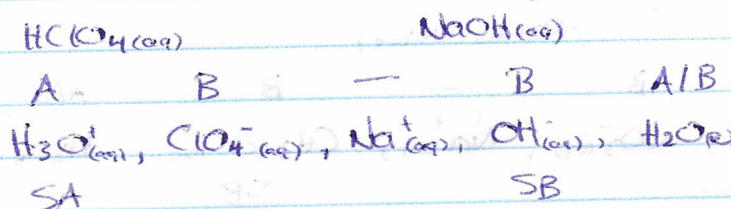 HClO₄(aq) NaOH(aq)
A B — B A/B
H₃O⁺(aq), ClO₄⁻(aq), Na⁺(aq), OH⁻(aq), H₂O(l)
SA SB